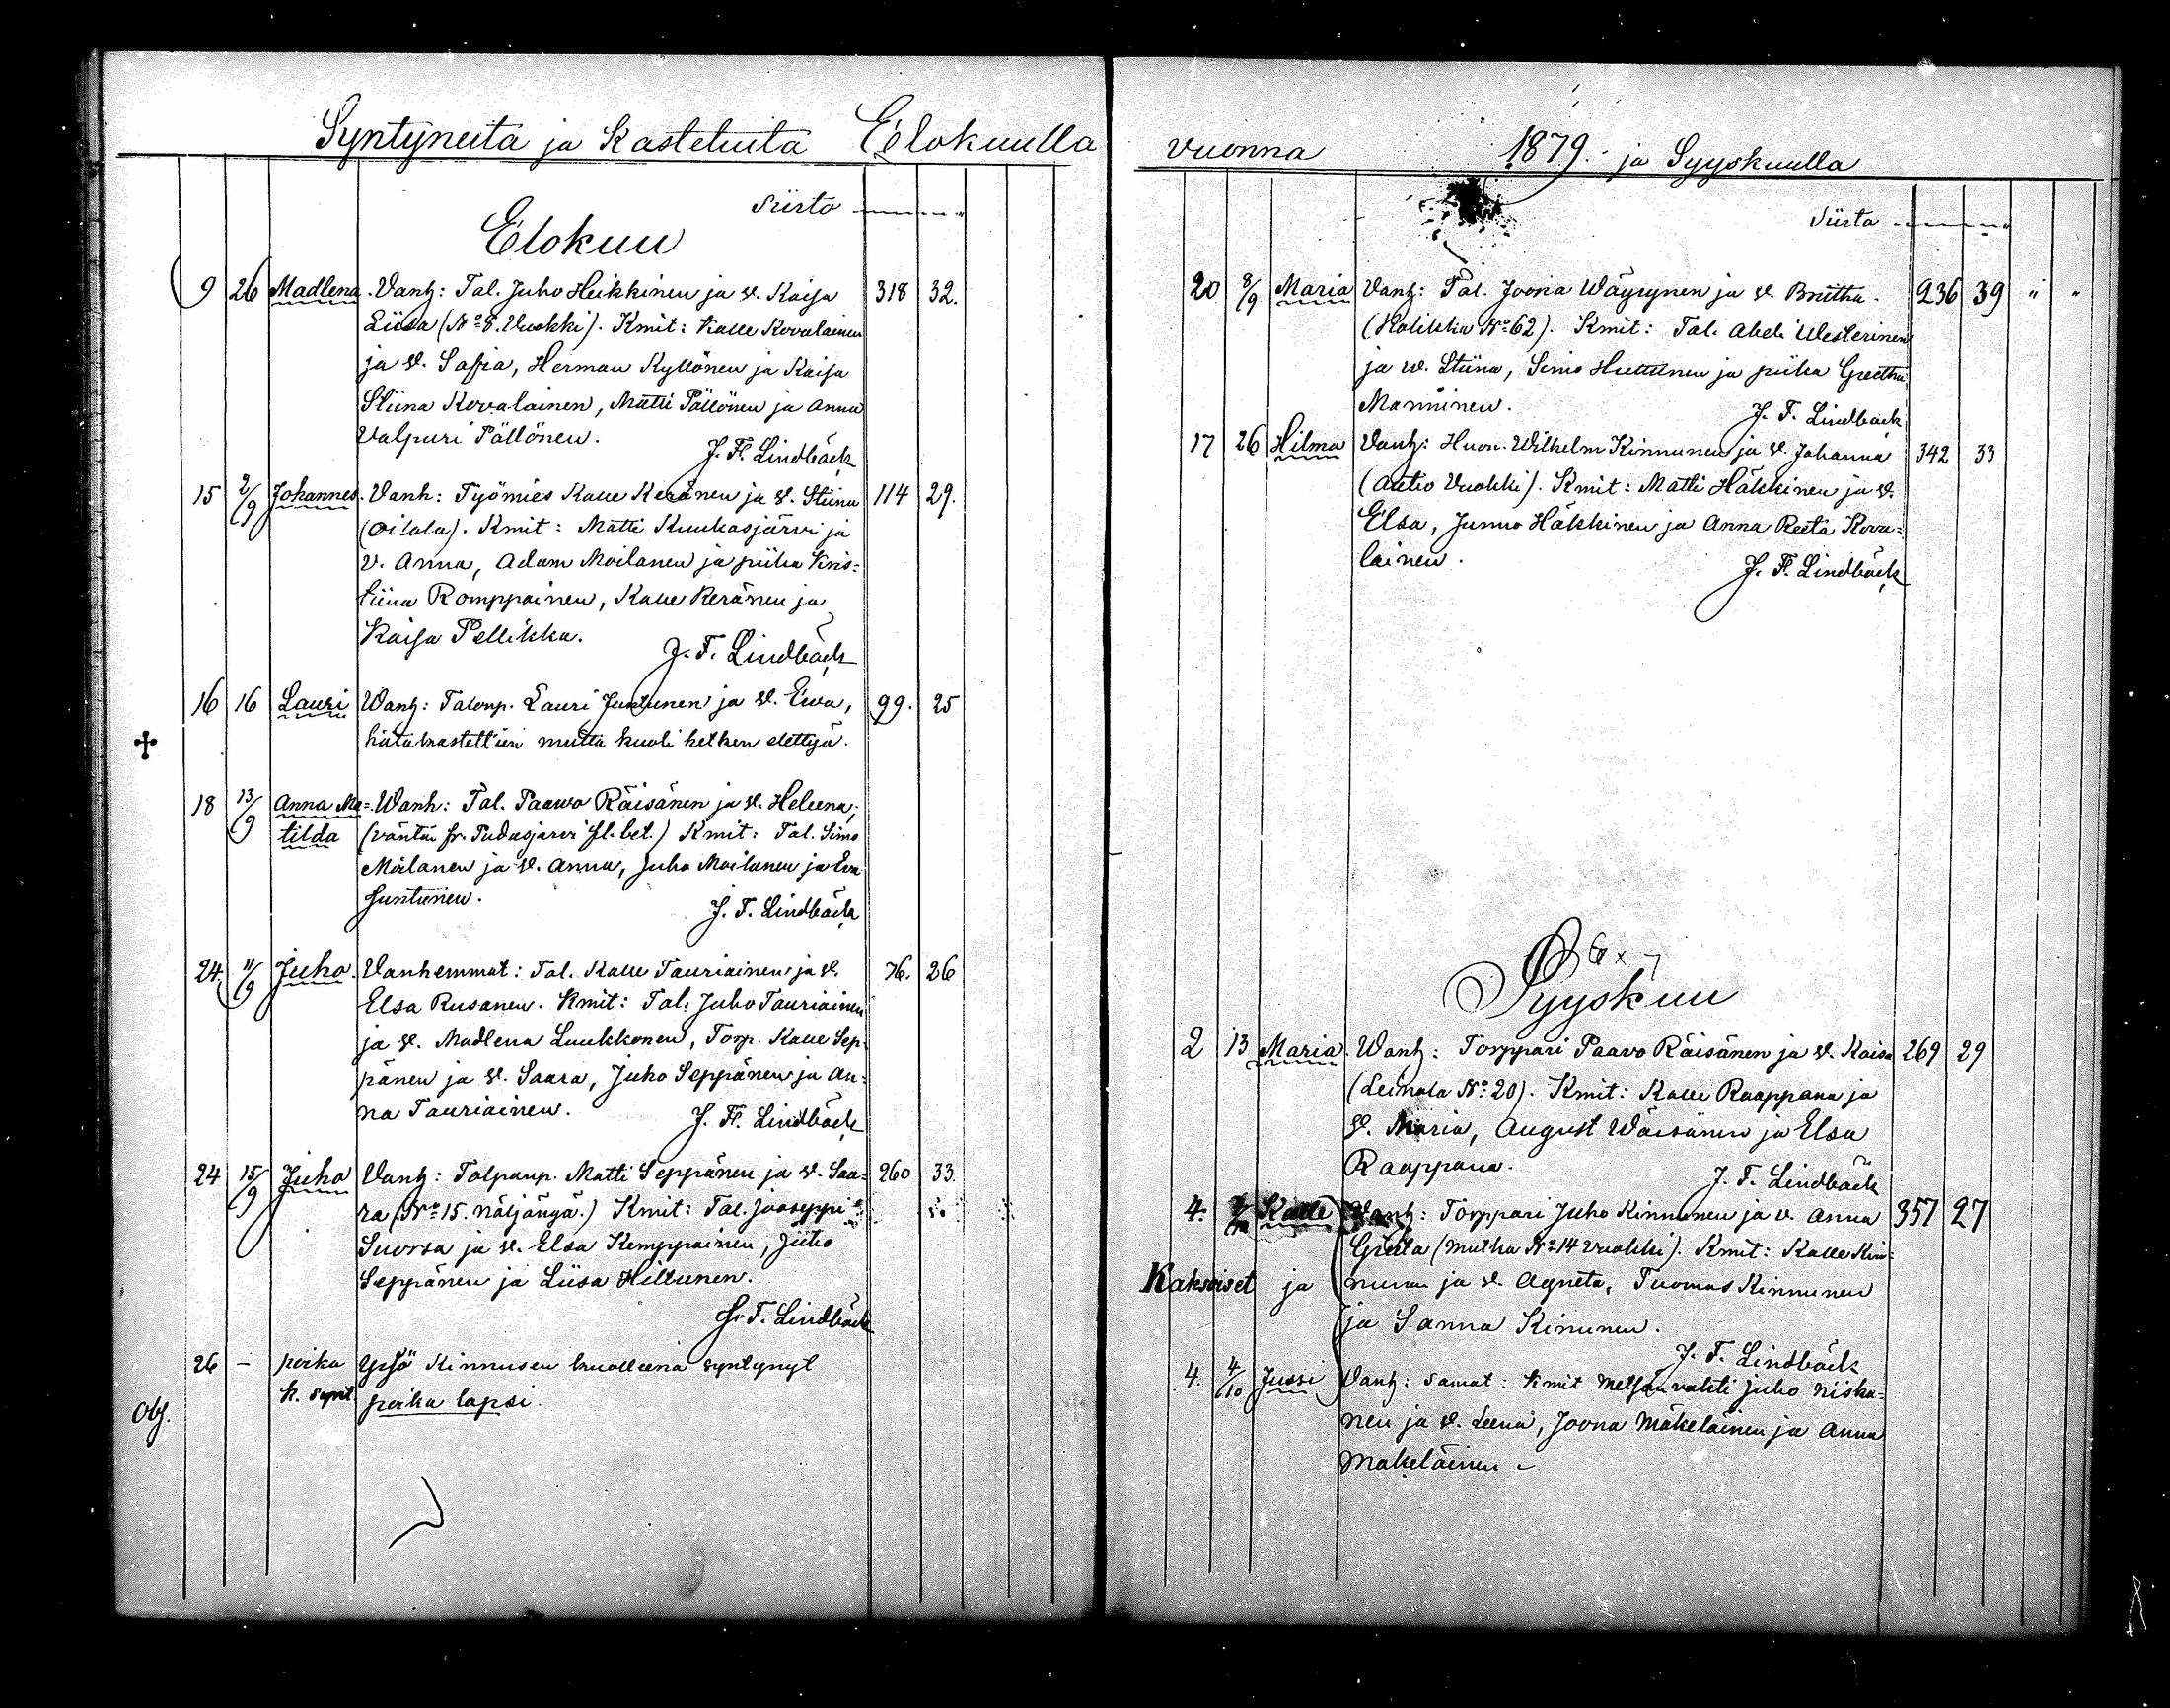 Syntyneitä ja Kastetuita Elokuulla
Siirto
Elokuu
9 26 Madlena. Vanh: Tal. Juho Heikkinen ja v. Kaisa 318 32.
Liisa (No 8. Vuokki). Kmit: Kalle Kovalainen
ja v. Sofia, Herman Kyllönen ja Kaisa
Stiina Kovalainen, Matti Pällönen ja Anna
Valpuri Pällönen.
J. F. Lindbäck
15 2/9 Johannes. Vanh: Työmies Kalle Keränen ja v. Stiina 114 29.
(Oilola). Kmit: Matti Kuukasjärvi ja
v. Anna, Adam Moilanen ja piika Kris=
tiina Romppainen, Kalle Keränen ja
Kaisa Pellikka.
J. F. Lindbäck
16 16 Lauri Wanh: Talonp. Lauri Juntunen ja v. Ewa, 99. 25
hätäkastettiin mutta kuoli hetken elettyä.
18 13/9 Anna Ma=. Wanh: Tal. Paawo Räisänen ja v. Heleena,
tilda (väntar fr. Pudasjärvi fl. bet.) Kmit: Tal. Simo
Moilanen ja v. Anna, Juho Moilanen ja Eva
Juntunen.
J. F. Lindbäck
24. 11/9 Juho. Vanhemmat: Tal. Kalle Tauriainen ja v. 76. 26
Elsa Rusanen. Kmit: Tal. Juho Tauriainen
ja v. Madlena Luukkonen, Torp. Kalle Sep
pänen ja v. Saara, Juho Seppänen ja An=
na Tauriainen.
J. F. Lindbäck
24 15/9 Juho Vanh: Talponp. Matti Seppänen ja v. Saa= 260 33.
ra (No 15. näljängä.) Kmit: Tal. Jooseppi
Suorsa ja v. Elsa Kemppainen, Juho
Seppänen ja Liisa Hiltunen.
J. F. Lindbäck
26 – poika Yrjö Kinnusen kuolleena syntynyt
k. synt. poika lapsi.
Obs.
vuonna 1879. ja Syyskuulla
Siirto
20 8/9 Maria Vanh: Tal. Joona Wäyrynen ja v. Briitha. 236 39 " "
(Kokkka No 62). Kmit: Tal. Abel Westerinen
ja v. Stiina, Simo Huttunen ja piika Greetha
Manninen.
J. F. Lindbäck
17 26 Hilma Vanh: Huon. Wilhelm Kinnunen ja v. Johanna 342 33
(Autio Vuokki). Kmit: Matti Häkkinen ja v.
Elsa, Junno Häkkinen ja Anna Reeta Kova=
lainen.
J. F. Lindbäck
6 x 7
Syyskuu
2 13 Maria. Wanh: Torppari Paavo Räisänen ja v. Kaisa 269 29
(Leinola No 20). Kmit: Kalle Raappana ja
v. Maria, August Wäisänen ja Elsa
Raappana.
J. F. Lindbäck
4. Kalle Vanh: Torppari Juho Kinnunen ja v. Anna 357 27
Greeta (Mutka No 14 Vuokki). Kmit: Kalle Kin=
Kaksoiset ja nunen ja v. Agneta, Tuomas Kinnunen
ja Sanna Kinunen.
J. F. Lindbäck
4. 4/10 Jussi Vanh: samat: Kmit Metsänvahti Juho Niska=
nen ja v. Leena, Joona Mäkeläinen ja Anna
Mäkeläinen –